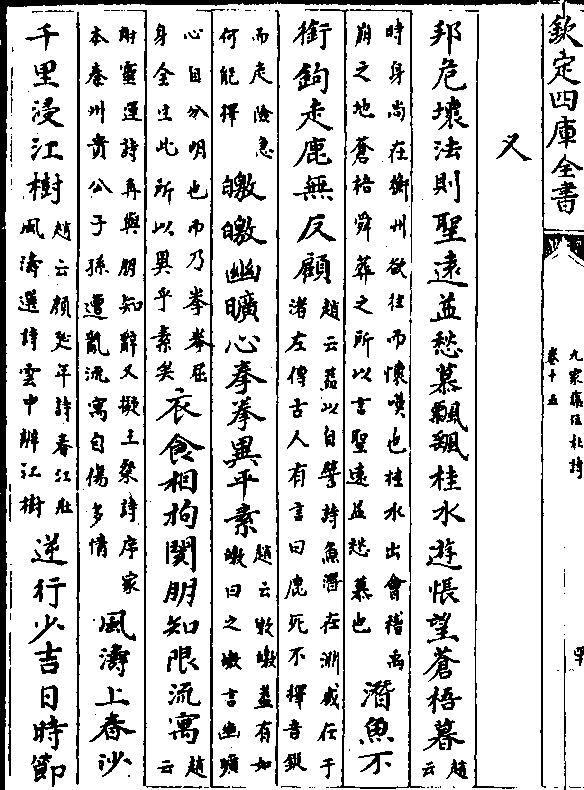 欽定四庫全書
九家集注杜詩
卷十五
又
邦危壞法則聖遠益愁慕飄颻桂水遊悵望蒼梧暮趙云
時身尚在衡州欲往而懷嘆也桂水出會稽禹
崩之地蒼梧舜葬之所以言聖遠益愁慕也
潛魚不
銜鉤走鹿無反顧
趙云蓋以自譬詩魚潛在淵或在于
渚左傳古人有言曰鹿死不擇音鋌
而走險急
何能擇
皦皦幽曠心拳拳異平素
趙云皦皦蓋有如
皦日之皦言幽曠
心自分明也而乃拳拳屈
身全生此所以異乎素矣
衣食相拘閡朋知限流寓趙云
謝靈運詩再與朋知辭又擬王粲詩序家
本秦州貴公子孫遭亂流寓自傷多情
風濤上春沙
千里浸江樹
趙云顏延年詩春江壯
風濤選詩雲中辨江樹
逆行少吉日時節